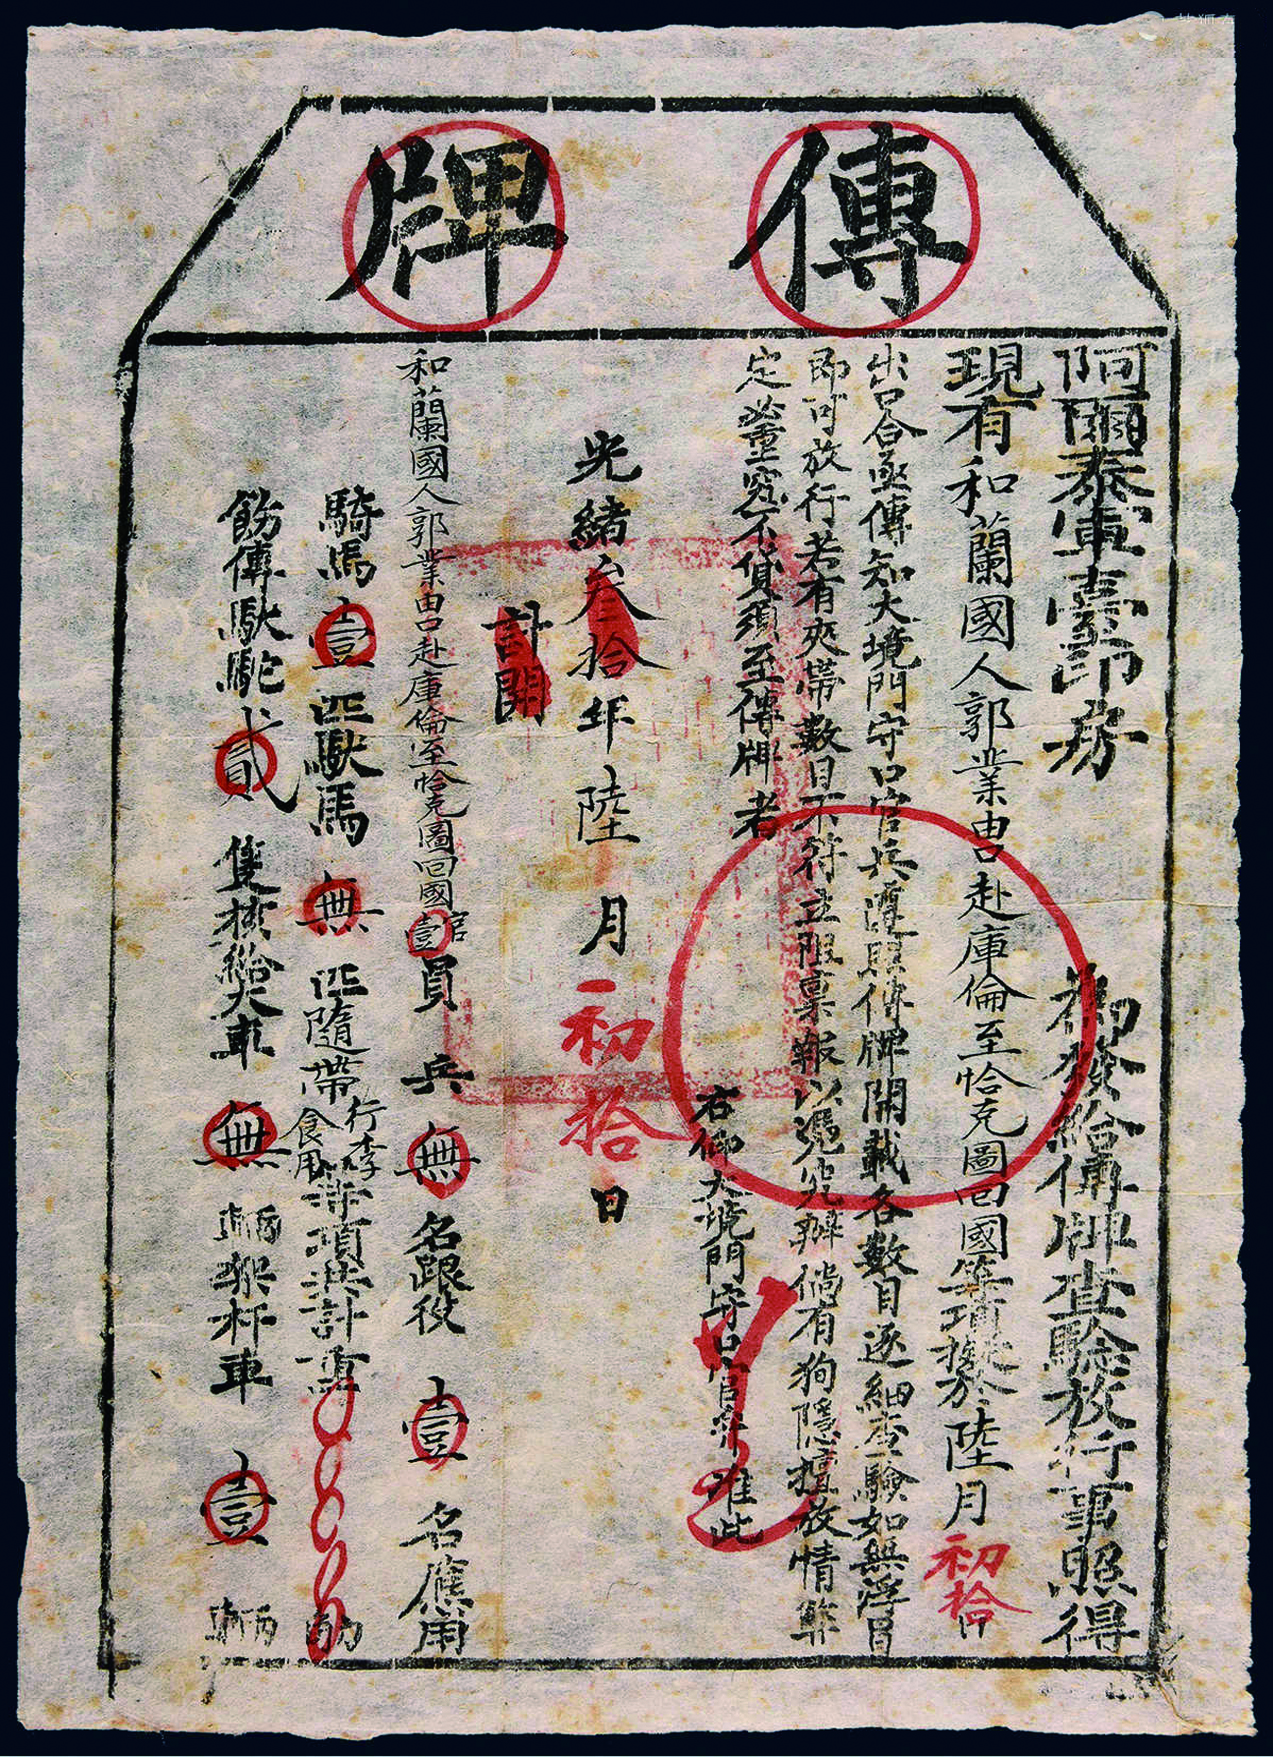 傳牌
阿爾泰軍臺印房 為發給傳牌查驗放行事照得
現有和蘭國人郭業由口赴庫倫至恰克圖回國等項擬於陸月初拾日
出口合亟傳知大境門守口官兵遵照傳牌開載各數目逐細查驗如無浮冒
即可放行若有夾帶數目不符立阻稟報以憑究辦倘有狥隱擅放情弊
定當重究不貸須至傳牌者
右仰大境門守口官弁准此
光緒叁拾年陸月初拾日
計開
和蘭國人郭業由口赴庫倫至恰克圖回國官壹員兵無名跟役壹名應用
騎馬壹匹馱馬無匹隨帶行李食用等項共計重 觔
飭傳馱駝貳隻擬給大車無輛架杆車壹輛